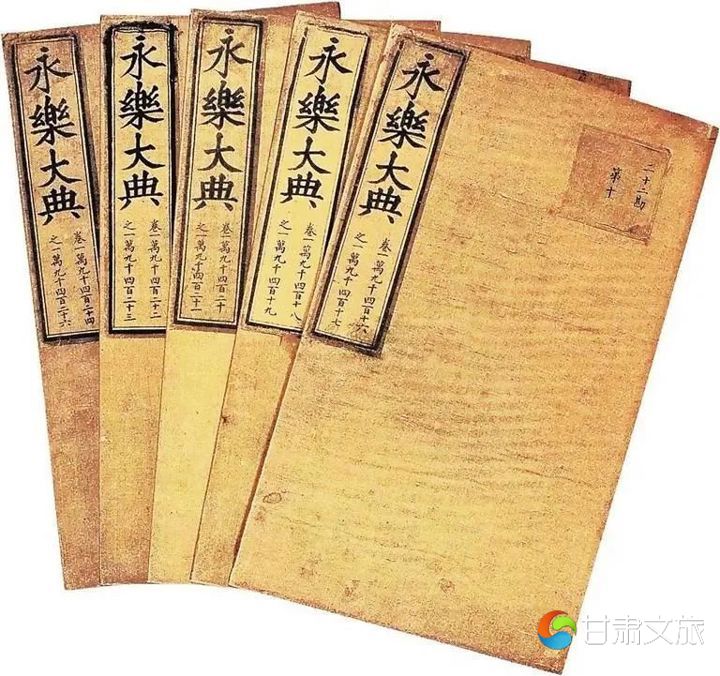 二十二勘
第十
永樂大典
卷一萬九千四百十六
之一萬九千四百十七
永樂大典
卷一萬九千四百十八
之一萬九千四百十九
永樂大典
卷一萬九千四百二十
之一萬九千四百二十一
永樂大典
卷一萬九千四百二十二
之一萬九千四百二十三
永樂大典
卷一萬九千四百二十四
之一萬九千四百二十六
甘肃文旅